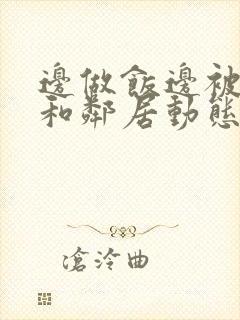 邊做飯邊被
和鄰居動態
滄泠曲